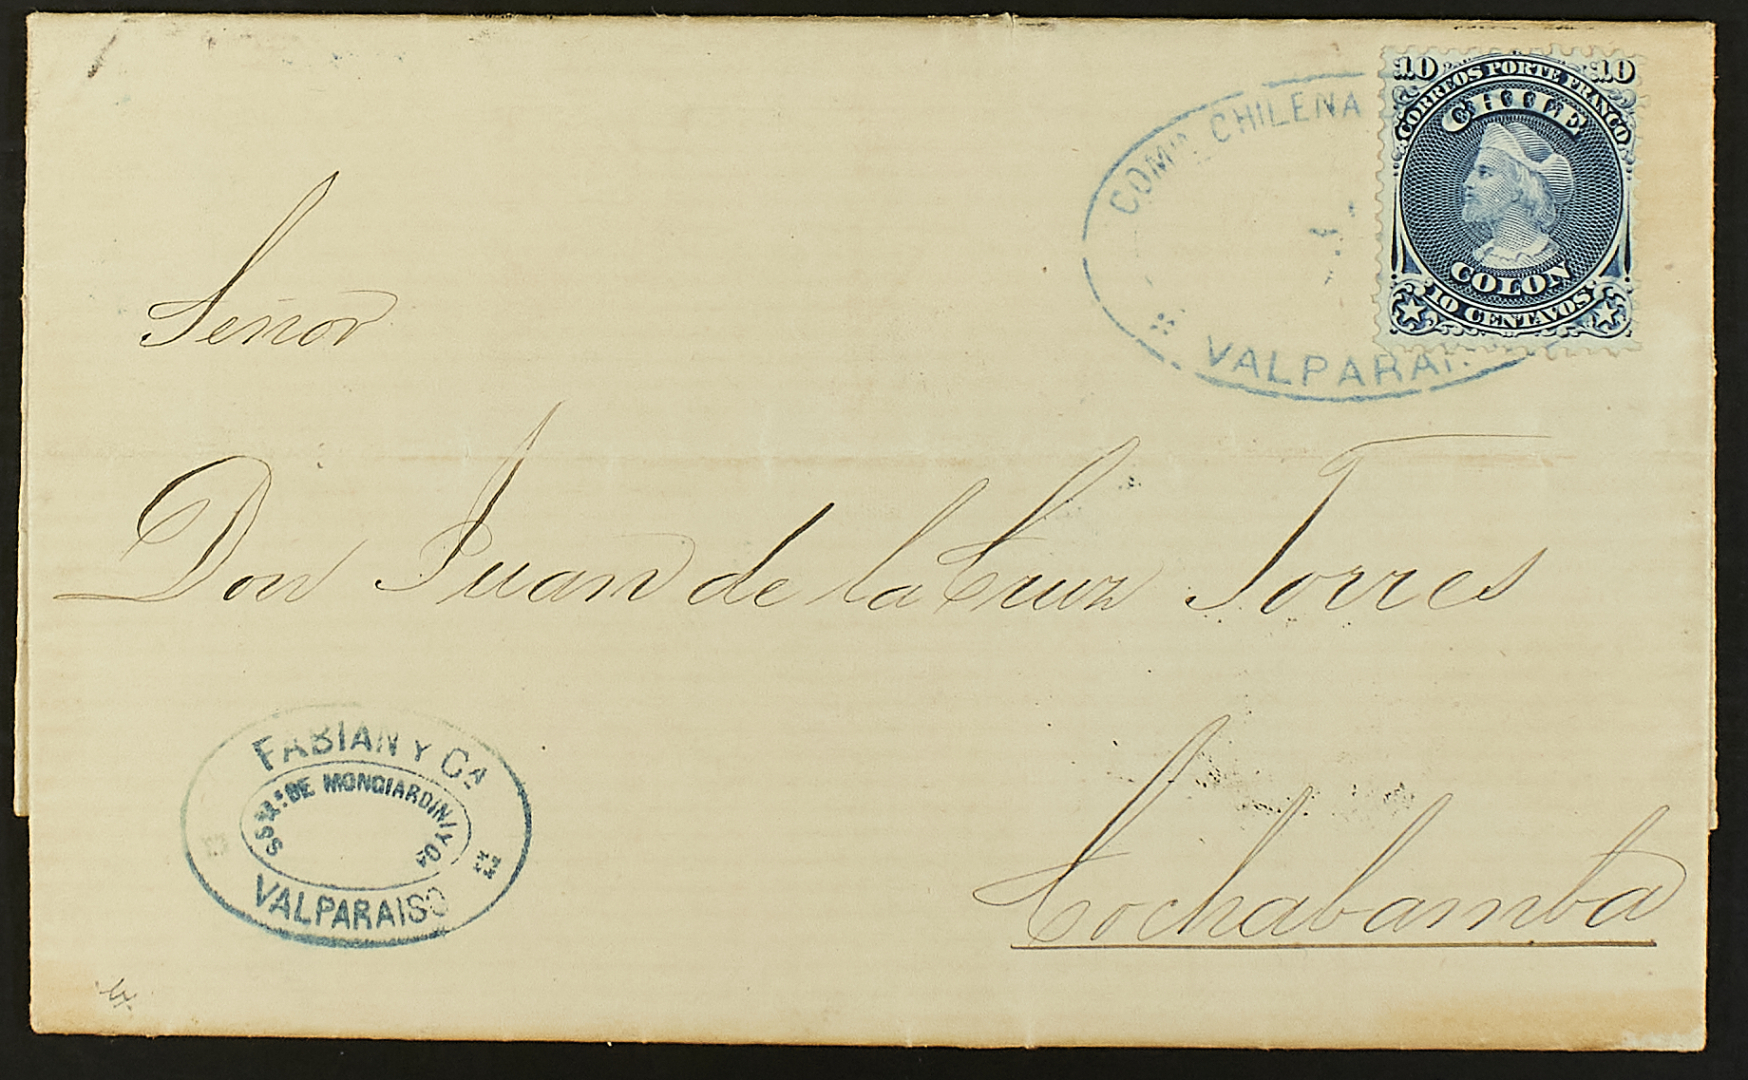 COMPª CHILENA
VALPARAI
10 10
CORREOS PORTE FRANCO
CHILE
COLON
10 CENTAVOS
Señor
Don Juan de la Cruz Torres
Cochabamba
FABIAN Y Cª
SSRES DE MONGIARDINI Y Cª
VALPARAISO